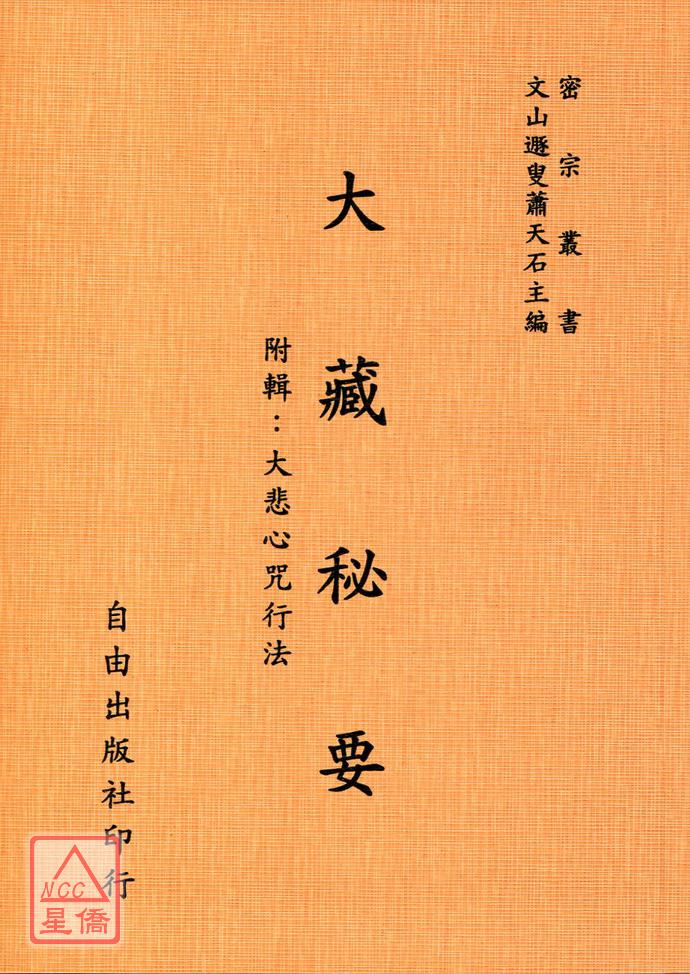 密宗叢書
文山遯叟蕭天石主編
大藏秘要
附輯：大悲心咒行法
自由出版社印行
NCC
星僑